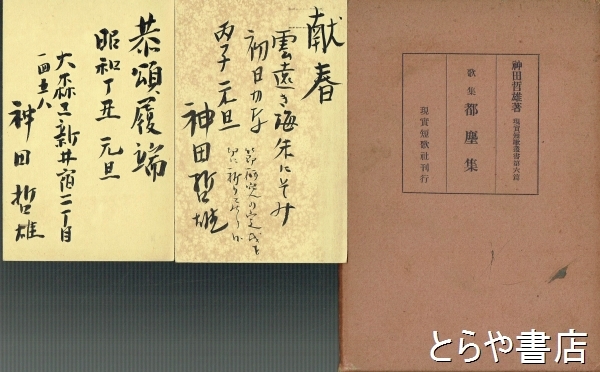 恭頌履端
昭和丁丑 元旦
大森区新井宿二丁目
一四五八
神田哲雄
献春
雲遠き海朱にそみ
初日かな
丙子 元旦
神田哲雄
神田哲雄著 現實短歌叢書第六篇
歌集 都塵集
現實短歌社刊行
とらや書店